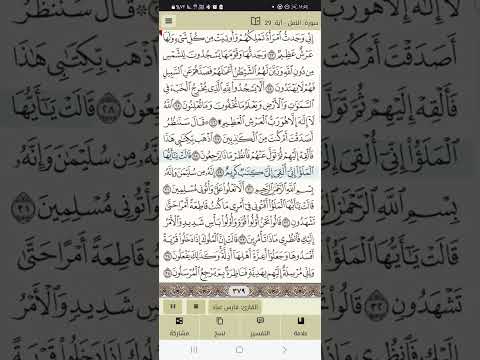 سورة: النمل - آية: 29
إِنِّي وَجَدتُّ ٱمْرَأَةً تَمْلِكُهُمْ وَأُوتِيَتْ مِن كُلِّ شَيْءٍ وَلَهَا
عَرْشٌ عَظِيمٌ ٢٣ وَجَدتُّهَا وَقَوْمَهَا يَسْجُدُونَ لِلشَّمْسِ
مِن دُونِ ٱللَّهِ وَزَيَّنَ لَهُمُ ٱلشَّيْطَٰنُ أَعْمَٰلَهُمْ فَصَدَّهُمْ عَنِ ٱلسَّبِيلِ
فَهُمْ لَا يَهْتَدُونَ ٢٤ أَلَّا يَسْجُدُوا۟ لِلَّهِ ٱلَّذِي يُخْرِجُ ٱلْخَبْءَ فِي
ٱلسَّمَٰوَٰتِ وَٱلْأَرْضِ وَيَعْلَمُ مَا تُخْفُونَ وَمَا تُعْلِنُونَ ٢٥
ٱللَّهُ لَآ إِلَٰهَ إِلَّا هُوَ رَبُّ ٱلْعَرْشِ ٱلْعَظِيمِ ۩ ٢٦ قَالَ سَنَنظُرُ
أَصَدَقْتَ أَمْ كُنتَ مِنَ ٱلْكَٰذِبِينَ ٢٧ ٱذْهَب بِّكِتَٰبِي هَٰذَا
فَأَلْقِهْ إِلَيْهِمْ ثُمَّ تَوَلَّ عَنْهُمْ فَٱنظُرْ مَاذَا يَرْجِعُونَ ٢٨ قَالَتْ يَٰٓأَيُّهَا
ٱلْمَلَؤُا۟ إِنِّيٓ أُلْقِيَ إِلَيَّ كِتَٰبٌ كَرِيمٌ ٢٩ إِنَّهُۥ مِن سُلَيْمَٰنَ وَإِنَّهُۥ
بِسْمِ ٱللَّهِ ٱلرَّحْمَٰنِ ٱلرَّحِيمِ ٣٠ أَلَّا تَعْلُوا۟ عَلَيَّ وَأْتُونِي مُسْلِمِينَ ٣١
قَالَتْ يَٰٓأَيُّهَا ٱلْمَلَؤُا۟ أَفْتُونِي فِيٓ أَمْرِي مَا كُنتُ قَاطِعَةً أَمْرًا حَتَّىٰ
تَشْهَدُونِ ٣٢ قَالُوا۟ نَحْنُ أُو۟لُوا۟ قُوَّةٍ وَأُو۟لُوا۟ بَأْسٍ شَدِيدٍ وَٱلْأَمْرُ
إِلَيْكِ فَٱنظُرِي مَاذَا تَأْمُرِينَ ٣٣ قَالَتْ إِنَّ ٱلْمُلُوكَ إِذَا دَخَلُوا۟ قَرْيَةً
أَفْسَدُوهَا وَجَعَلُوٓا۟ أَعِزَّةَ أَهْلِهَآ أَذِلَّةً وَكَذَٰلِكَ يَفْعَلُونَ ٣٤
وَإِنِّي مُرْسِلَةٌ إِلَيْهِم بِهَدِيَّةٍ فَنَاظِرَةٌۢ بِمَ يَرْجِعُ ٱلْمُرْسَلُونَ ٣٥
٣٧٩
القارئ: فارس عباد
علامة
التفسير
نسخ
مشاركة